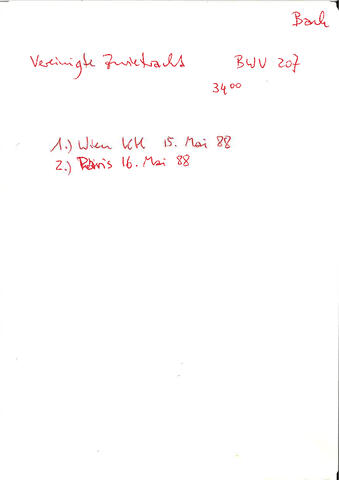 Bach
Vereinigte Zwietracht BWV 207
34⁰⁰
1.) Wien KH 15. Mai 88
2.) Paris 16. Mai 88